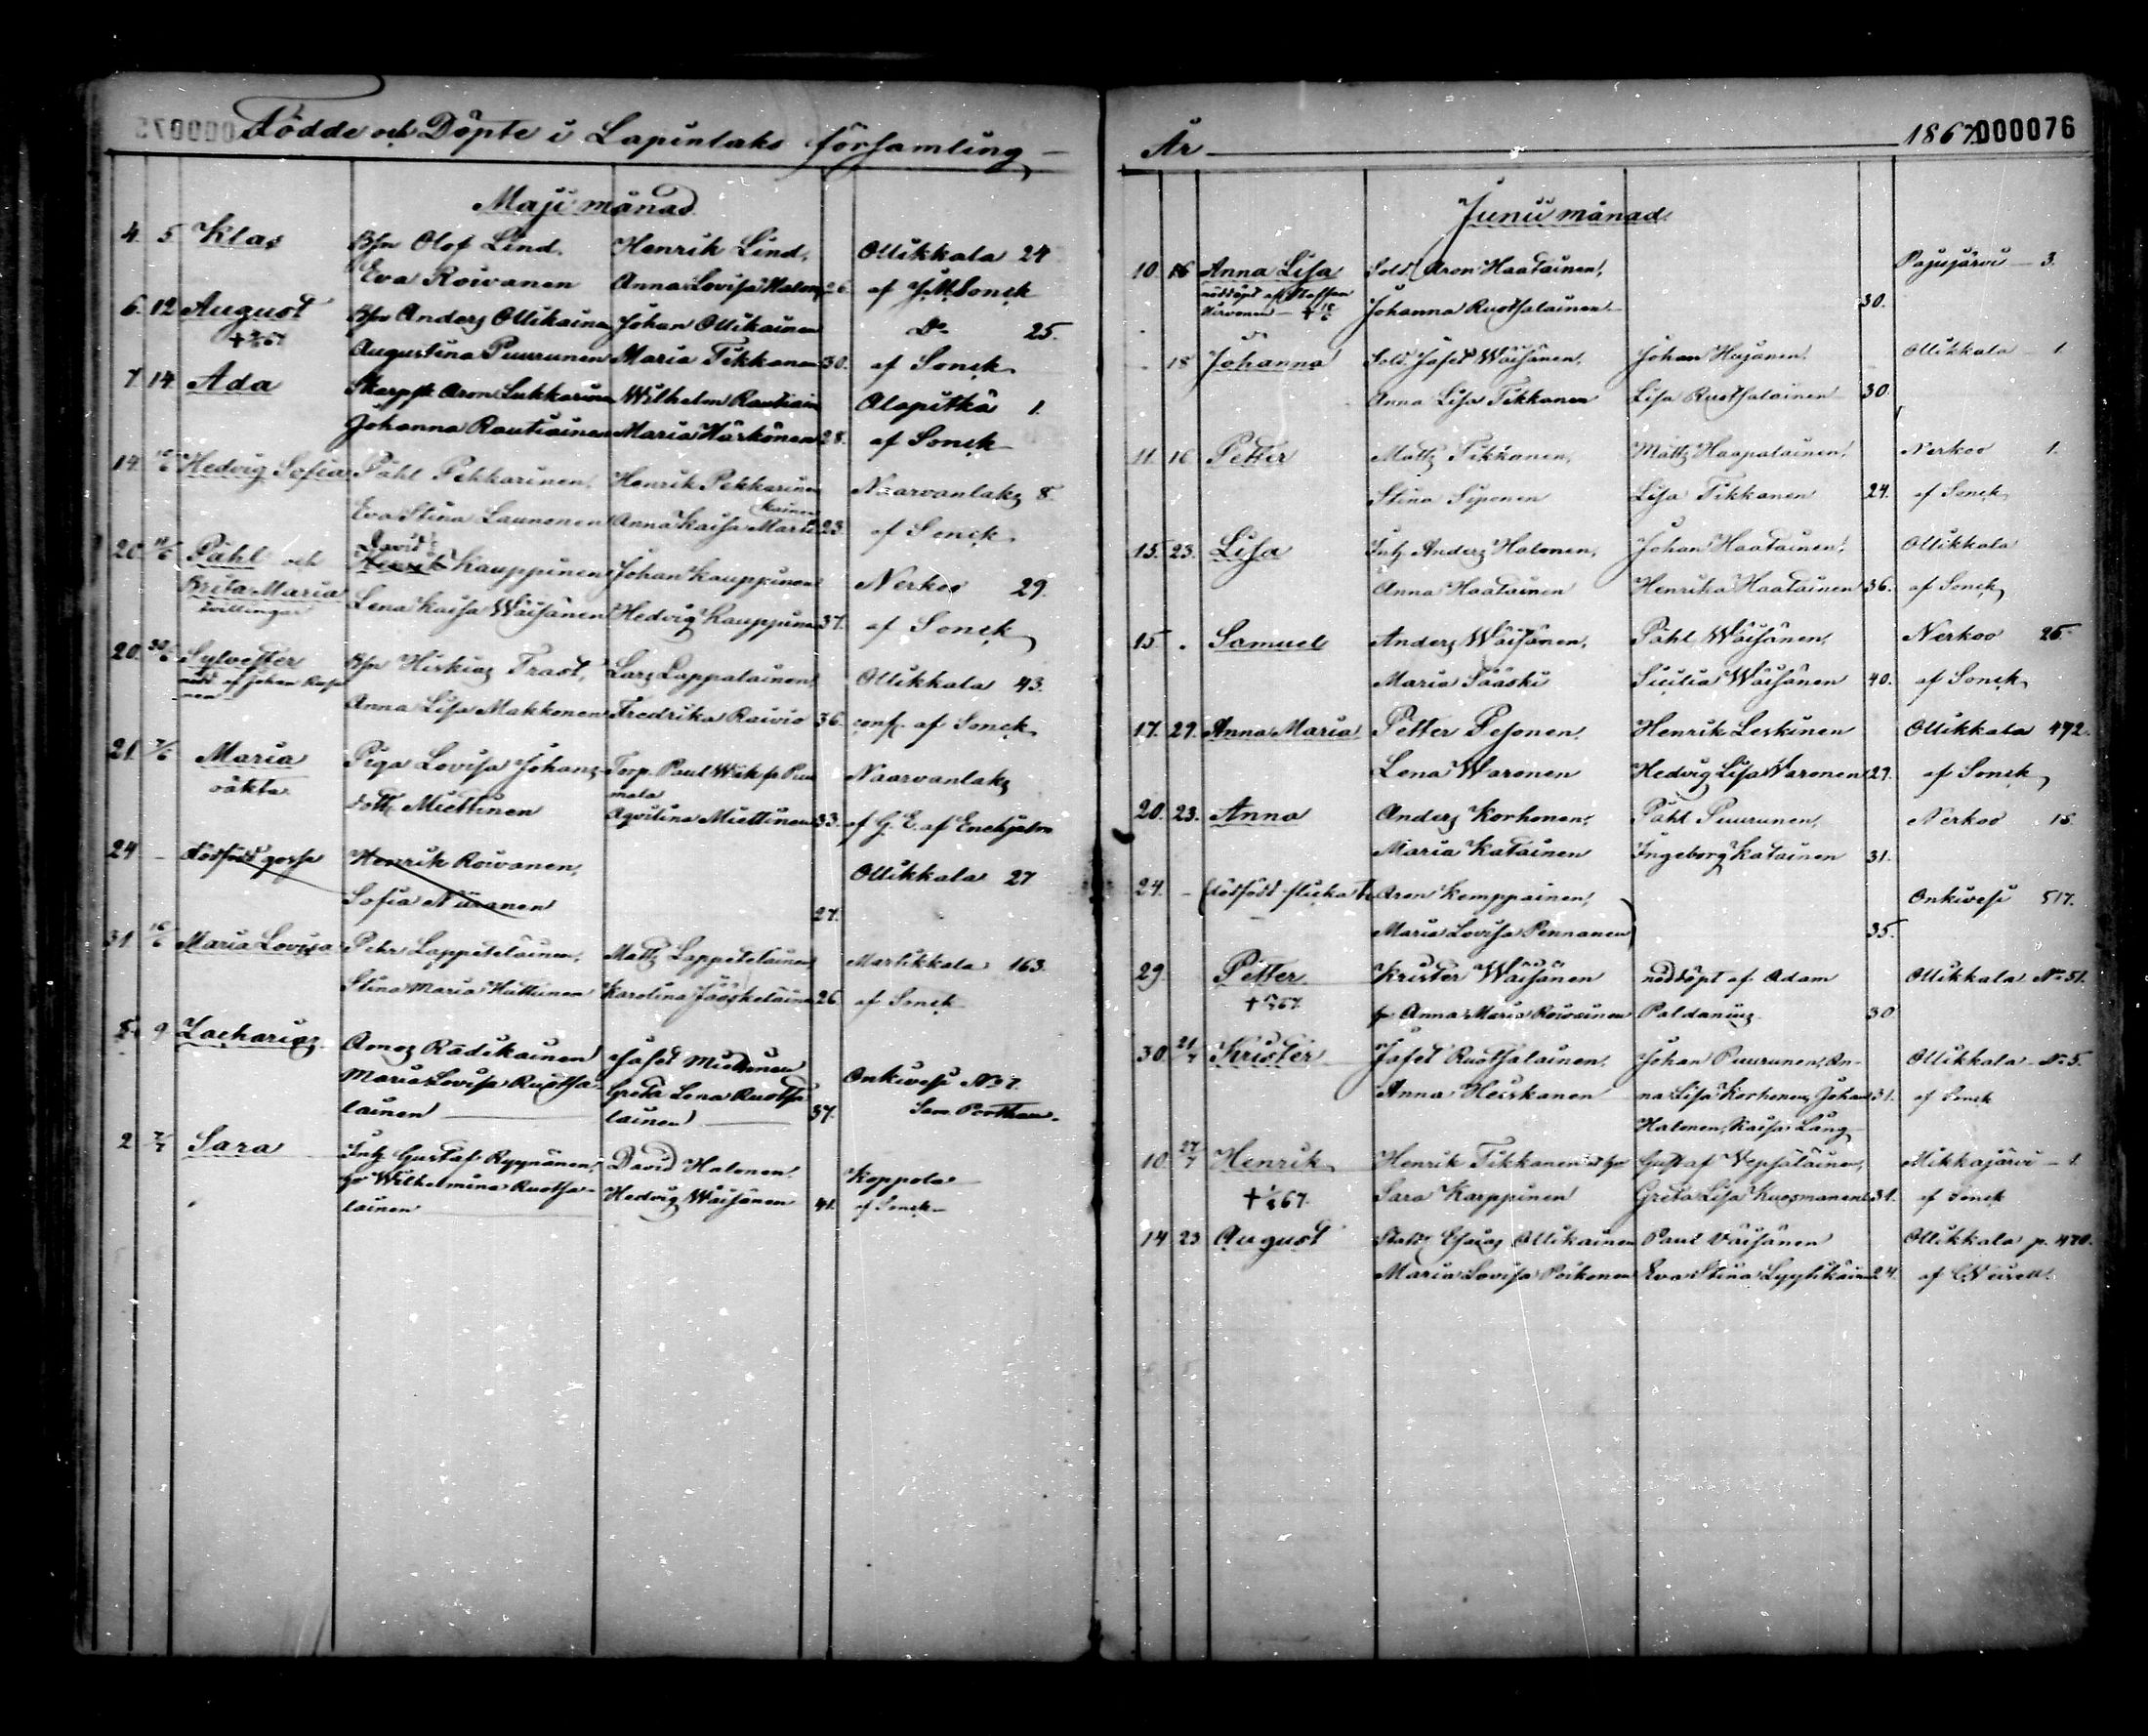 Födde och Döpte i Lapinlaks församling
Maji månad
4. 5 Klas Bsn Olof Lind. Henrik Lind, Ollikkala 24
Eva Roivanen Anna Lovisa 26. af J.M. Sonck
6. 12 August Bsn Anders Ollikainen Johan Ollikainen Do 25.
Augustina Puurunen Maria Tikkanen 30. af Sonck
7. 14. Ada Skarpsk Aron Lukkarinen Wilhelm Rautiain Alapitkä 1.
Johanna Rautiainen Maria Härkönen 28. af Sonck
14. Hedvig Sofia Påhl Pekkarinen, Henrik Pekkarinen Naarvanlaks 8.
Eva Stina Launonen Anna Kaisa Marti 23. af Sonck
kainen
20. Påhl och David Henrik Kauppinen Johan Kauppinen Nerkoo 29.
Brita Maria Lena Kaisa Wäisänen Hedvig Kauppinen 37. af Sonck
tvillingar
20. 30/6 Sylvester Bsn Hiskias Trast, Lars Lappalainen, Ollikkala 43.
nödd af Johan
nen Anna Lisa Makkonen Fredrika Raivio 36. conf. af Sonck
21. 7/6 Maria Piga Lovisa Johans Torp. Paul Naarvanlaks
oäkta dott. Miettinen Agvilina Miettinen 33. af G. E. af Enehjelm
24 – dödfödd gosse Henrik Roivanen, Ollikkala 27
Sofia Niiranen 27.
31. 16/6 Maria Lovisa Pehr Lappeteläinen, Matts Lappeteläinen Martikkala 163.
Stina Maria Huttunen Karolina Jääskeläine 26. af Sonck
8. 9 Zacharias. Amos Rädikainen Jafet Miettinen Onkivesi No 7.
Maria Lovisa Ruotsa- Greta Lena Ruotsa
lainen lainen 37. Sam. Porthan.
2 7/7 Sara Inh. Gustaf Ryynänen, David Halonen. Koppola
hr Wilhelmina Ruotsa- Hedvig Wäisänen 41. af Sonck
lainen
År 1867. 000076
Junii månad.
10. 16 Anna Lisa Sold. Aron Haatainen, Pajujärvi 3.
nöddöpt af Staffan
Hirvonen Johanna Ruotsalainen 30.
" 18 Johanna Sold. Jafet Wäisänen, Johan Hujanen, Ollikkala 1.
Anna Lisa Tikkanen Lisa Ruotsalainen 30.
11. 16 Petter Matts Tikkanen, Matts Haapalainen, Nerkoo 1.
Stina Siponen Lisa Tikkanen 24. af Sonck
15. 23. Lisa Inh. Anders Halonen, Johan Haatainen, Ollikkala
Anna Haatainen Henrika Haatainen 36. af Sonck
15 . Samuel Anders Wäisänen, Påhl Wäisänen, Nerkoo 26.
Maria Sääski Sicilia Wäisänen 40. af Sonck
17. 29. Anna Maria Petter Pesonen, Henrik Leskinen Ollikkala 492.
Lena Waronen Hedvig Lisa Waronen 29. af Sonck
20. 23. Anna Anders Korhonen, Påhl Puurunen, Nerkoo 15
Maria Katainen Ingeborg Katainen 31.
24. – dödfödd flicka Aron Kemppainen, Onkivesi 517.
Maria Lovisa Pennanen 35.
29. Petter Krister Wäisänen nöddöpt af Adam Ollikkala No 51.
hr Anna Maria Roivainen Paldanius. 30
30. 21/7 Krister Jafet Ruotsalainen, Johan Puurunen, An- Ollikkala No 5.
Anna Heiskanen na Lisa Korhonen, Johan 31. af Sonck
Halonen, Kaisa Lång
10. 27/7 Henrik Henrik Tikkanen Gustaf Vepsäläinen, Mikkajärvi 1.
Sara Karppinen Greta Lisa Kuosmanen 31. af Sonck
14 23 August Statd. Esaias Ollikainen Paul Väisänen Ollikkala p. 470.
Maria Lovisa Poikonen Eva Stina Lyytikäin 24. af